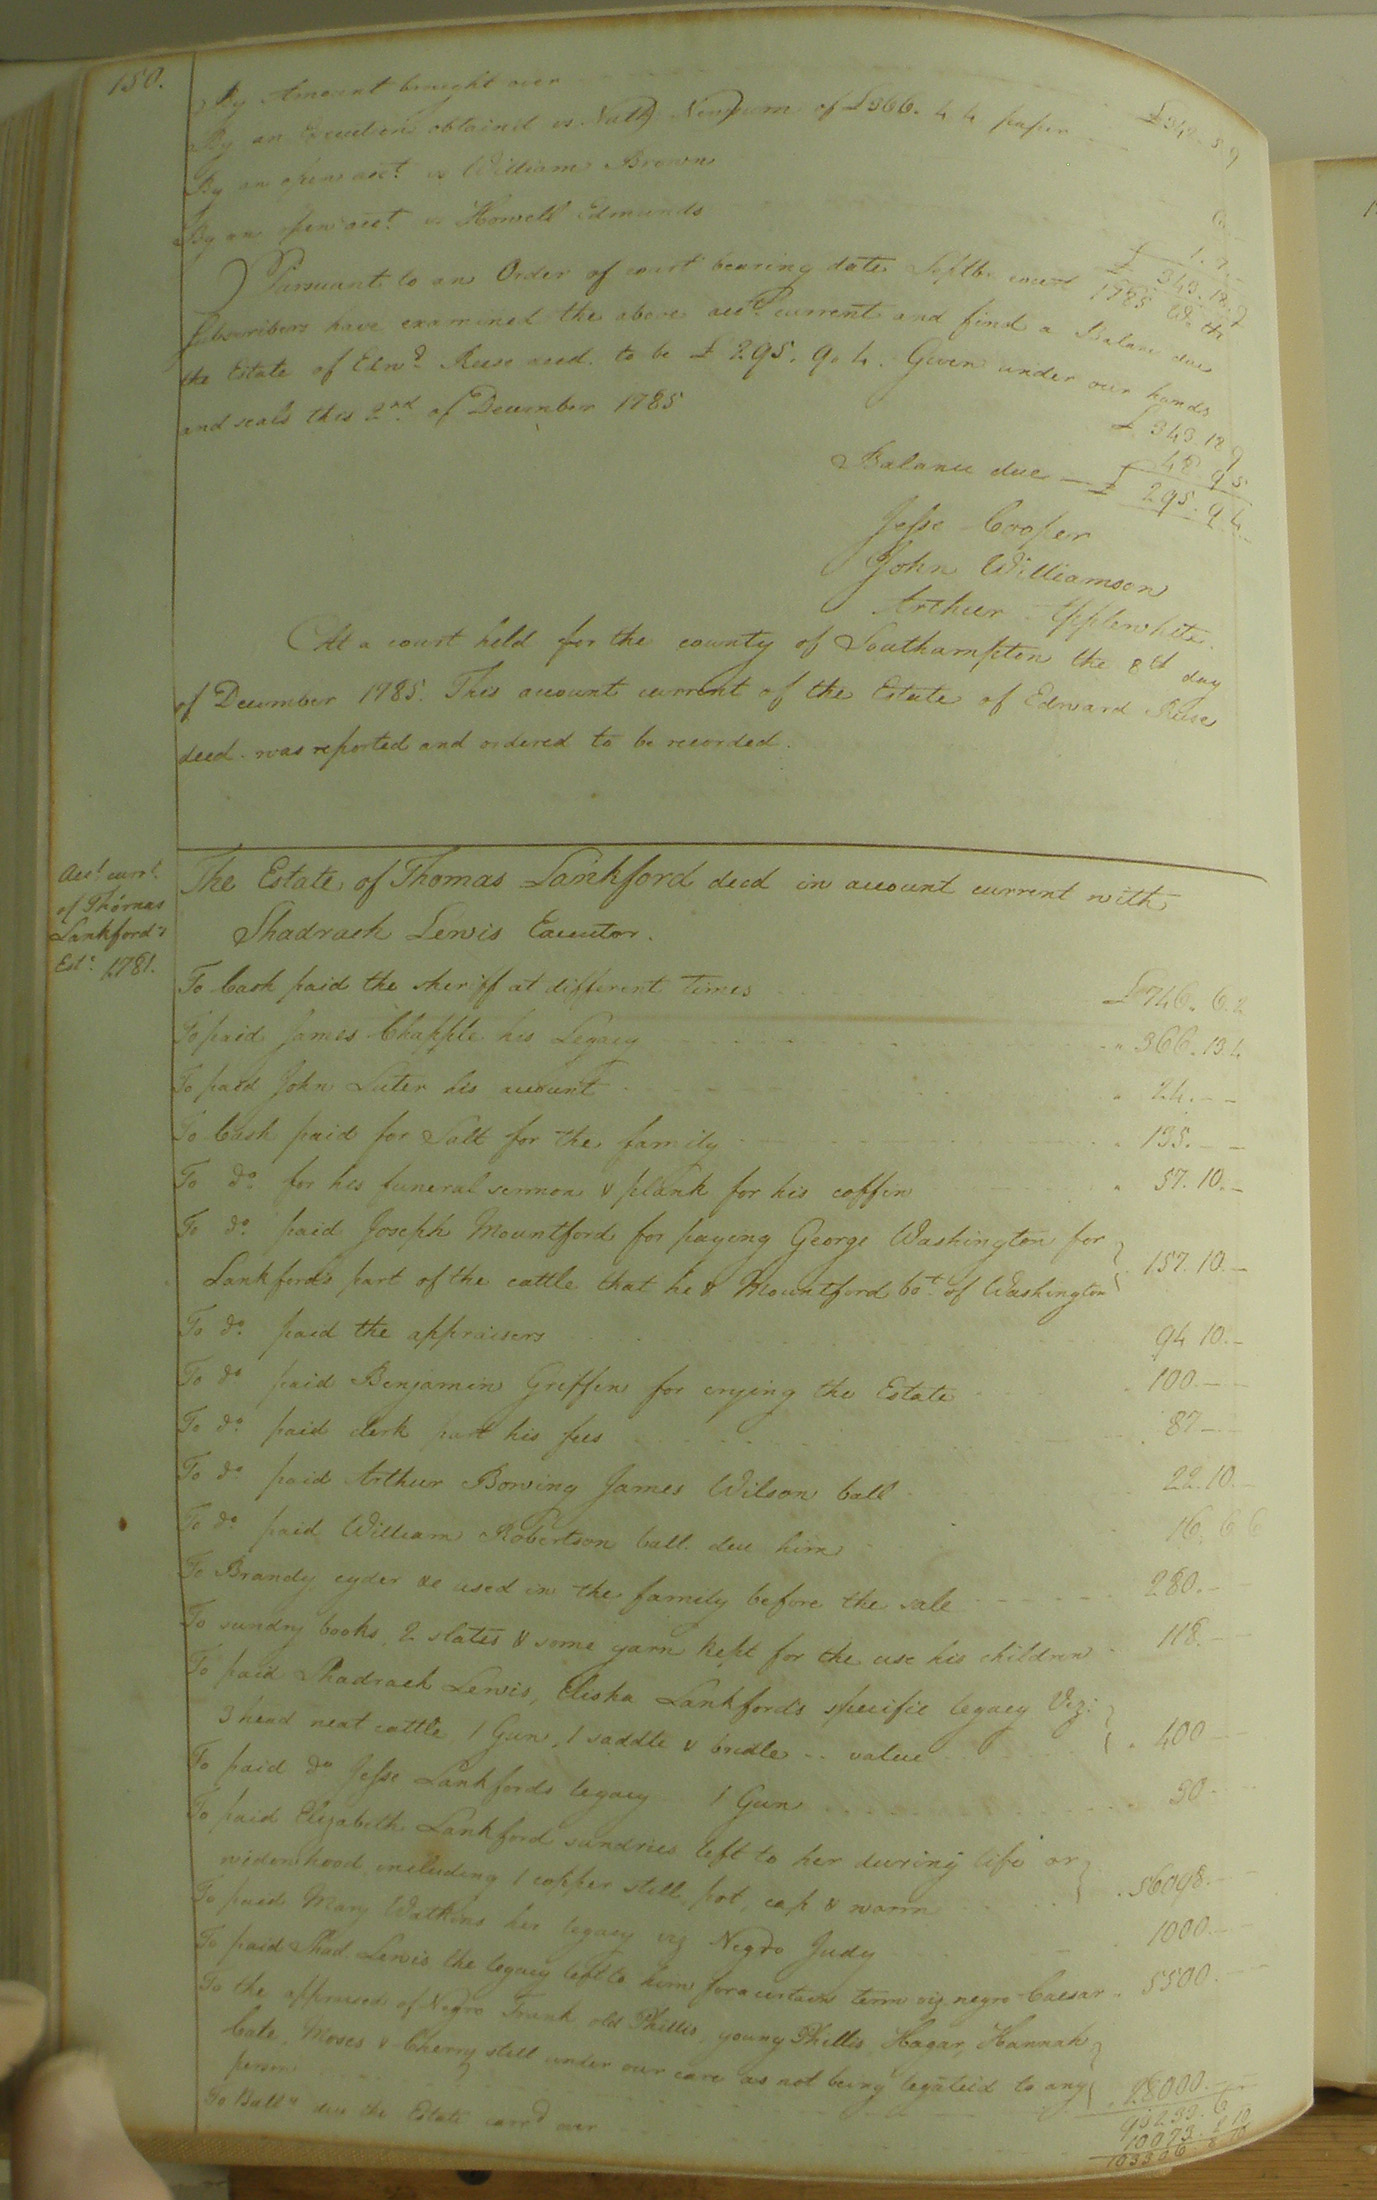 150.
By Amount brought over £342.5.9
By an Execution obtained vs. Nath. Newsum of £366.4.4 paper
By an open acct. vs William Brown 6
By an open acct. vs Howell Edmunds 1.7.
£343.18.9
Pursuant to an Order of court bearing date Septbr. court 1785 We the
subscribers have examined the above acct. current and find a Balance due
the Estate of Edwd. Reese decd. to be £295.9.4. Given under our hands
and seals this 2nd. of December 1785
£343.18.9
48.9.5
Balance due — £295.9.4
Jesse Cooper
John Williamson
Arthur Applewhite.
At a court held for the county of Southampton the 8th day
of December 1785. This account current of the Estate of Edward Reese
decd. was reported and ordered to be recorded.
Acct. currt.
of Thomas
Lankford's
Est. 1781.
The Estate of Thomas Lankford decd in account current with
Shadrack Lewis Executor.
To Cash paid the sheriff at different times £746.6.2
To paid James Chapple his Legacy " 366.13.4
To paid John Luter his account " 24.--
To Cash paid for Salt for the family " 135.--
To do. for his funeral sermon & plank for his coffin " 57.10.-
To do. paid Joseph Mountford for paying George Washington for
Lankfords part of the cattle that he & Mountford bot. of Washington 157.10.-
To do. paid the appraisers 94 10.-
To do paid Benjamin Griffin for crying the Estate 100.--
To do. paid clerk part his fees 87.--
To do paid Arthur Bowing James Wilson ball 22.10.-
To do. paid William Robertson ball. due him 16.6.6
To Brandy cyder &c used in the family before the sale 280.-
To sundry books, 2 slates & some yarn kept for the use his children 118.--
To paid Shadrack Lewis, Elisha Lankfords specific legacy Viz:
3 head neat cattle 1 Gun, 1 saddle & bridle -- value 400--
To paid do Jesse Lankfords legacy 1 Gun 30.--
To paid Elizabeth Lankford sundries left to her during life or
widowhood, including 1 copper still, pot, cap & worm 56098.--
To paid Mary Watkins her legacy viz Negro Judy 1000.--
To paid Shad. Lewis the legacy left to him for a certain term viz. negro Caesar 5500.--
To the appraised of Negro Frank old Phillis, young Phillis, Hagar, Hannah
Cate, Moses & Cherry still under our care as not being legateid to any
person 28000.--
95233.6
To Balle. due the Estate carrd. over 10073.2.10
103306.8.10